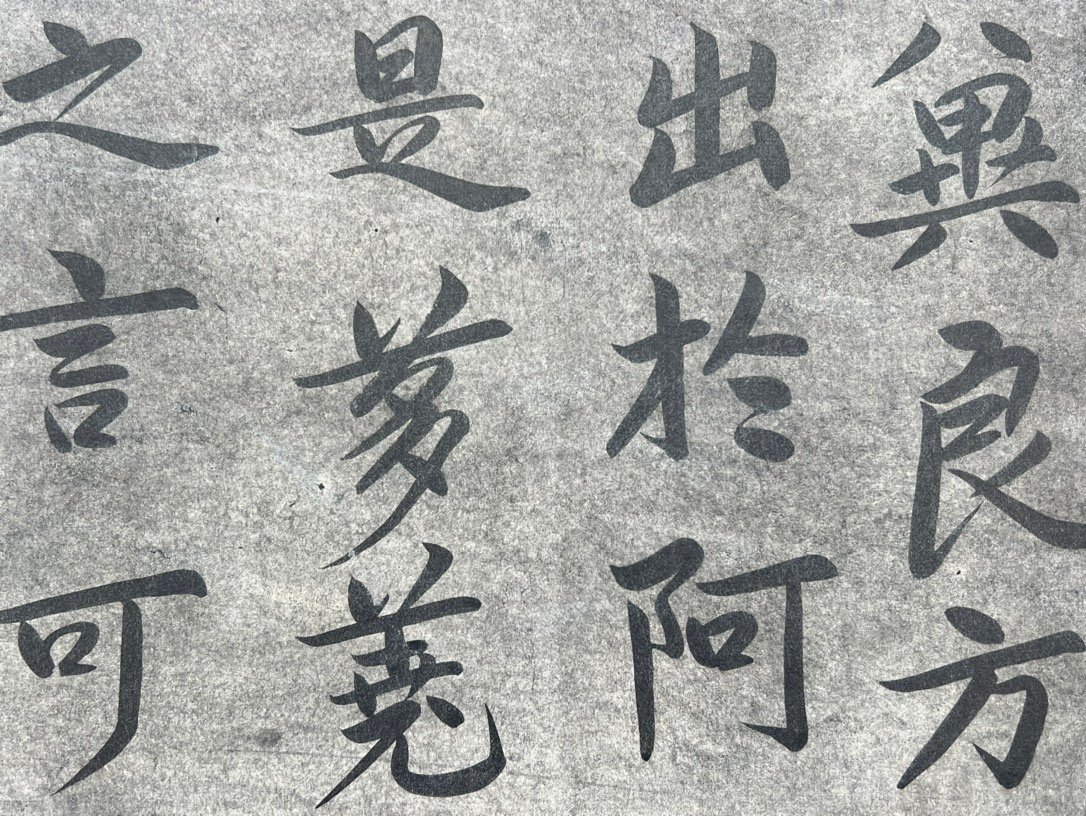 兾良方
出於阿
是芻蕘
之言可